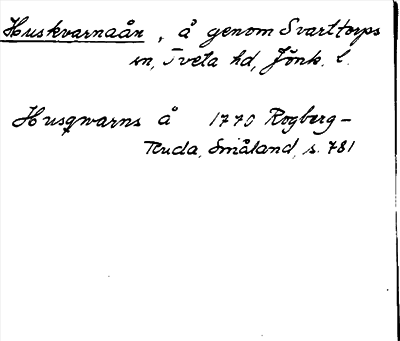 Huskvarnaån, å genom Svarttorps
sn, Tveta hd, Jönk. l.
Husqwarns å 1770 Rogberg-
Ruda, Småland, s. 781